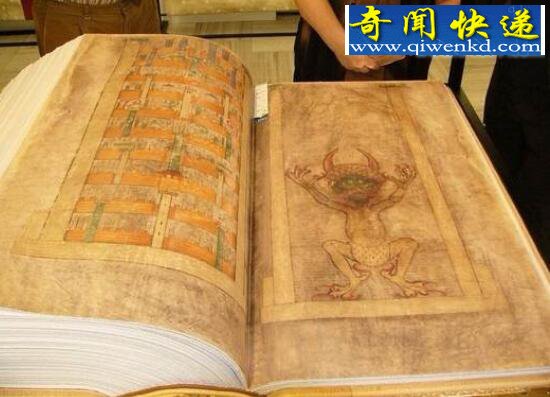 奇闻快递
www.qiwenkd.com